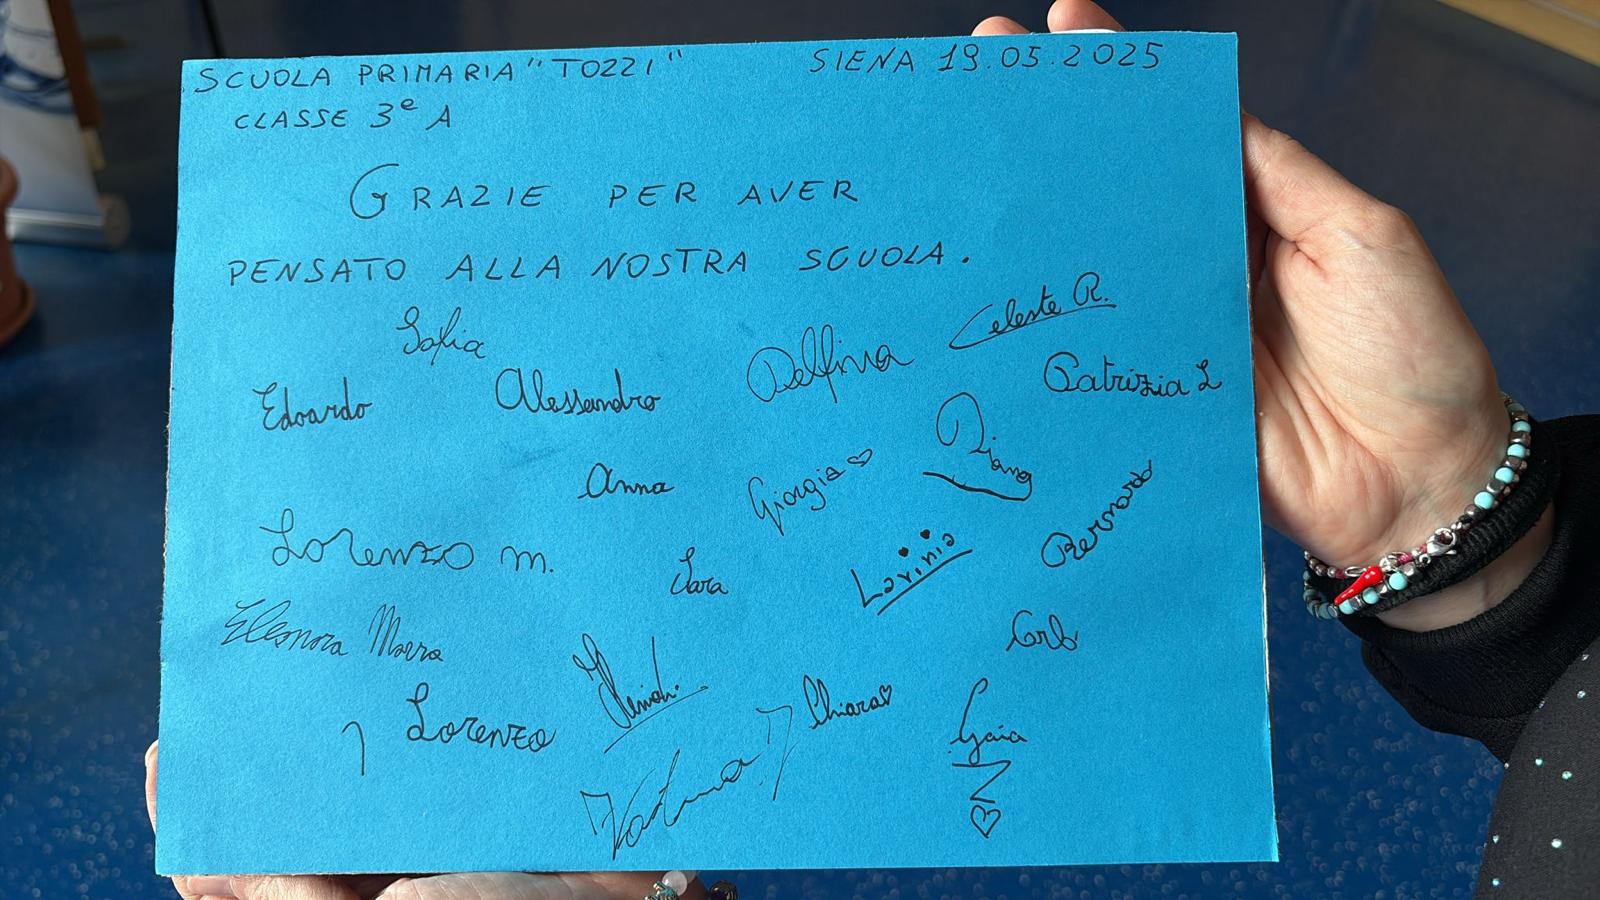 SCUOLA PRIMARIA "TOZZI" SIENA 19.05.2025
CLASSE 3e A
GRAZIE PER AVER
PENSATO ALLA NOSTRA SCUOLA.
Sofia
Celeste R.
Edoardo
Alessandro
Delfina
Patrizia L
Anna
Giorgia
Diana
Bernardo
Lorenzo m.
Sara
Lavinia
Eleonora Marra
Lorenzo
Chiara
Gaia